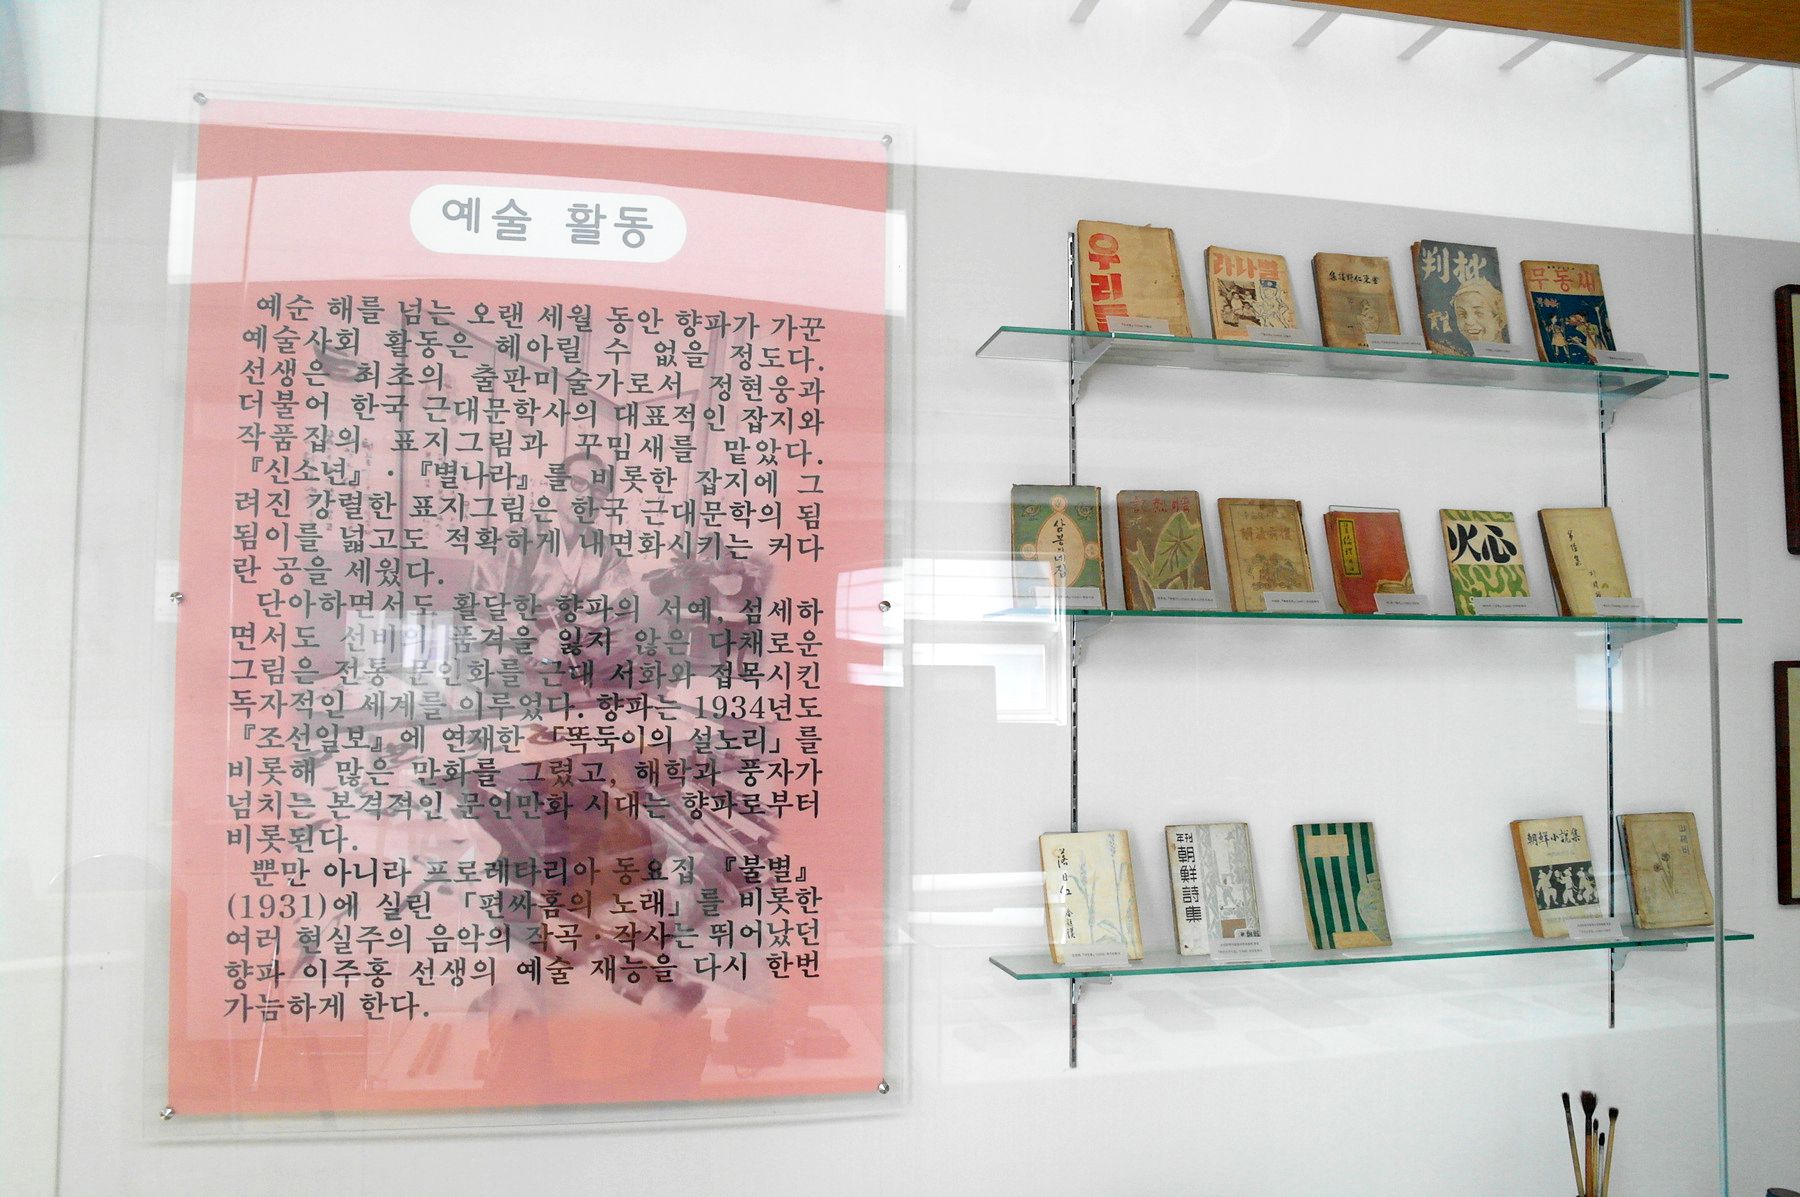 예술 활동
예순 해를 넘는 오랜 세월 동안 향파가 가꾼
예술사회 활동은 헤아릴 수 없을 정도다.
선생은 최초의 출판미술가로서 정현웅과
더불어 한국 근대문학사의 대표적인 잡지와
작품집의 표지그림과 꾸밈새를 맡았다.
『신소년』·『별나라』를 비롯한 잡지에 그
려진 강렬한 표지그림은 한국 근대문학의 됨
됨이를 넓고도 적확하게 내면화시키는 커다
란 공을 세웠다.
단아하면서도 활달한 향파의 서예, 섬세하
면서도 선비의 품격을 잃지 않은 다채로운
그림은 전통 문인화를 근대 서화와 접목시킨
독자적인 세계를 이루었다. 향파는 1934년도
『조선일보』에 연재한 「똑둑이의 설노리」를
비롯해 많은 만화를 그렸고, 해학과 풍자가
넘치는 본격적인 문인만화 시대는 향파로부터
비롯된다.
뿐만 아니라 프로레타리아 동요집 『불별』
(1931)에 실린 「편싸홈의 노래」를 비롯한
여러 현실주의 음악의 작곡·작사는 뛰어났던
향파 이주홍 선생의 예술 재능을 다시 한번
가늠하게 한다.
우리들
판批
무동새
삼봉이네집
火心
年刊
朝鮮詩集
朝鮮小說集